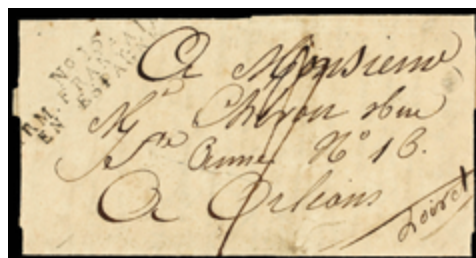 No 15
ARM. FRANÇAISE
EN ESPAGNE
A Monsieur
Mr Cheron Rue
Ste Anne No 13.
A Orléans
Loiret